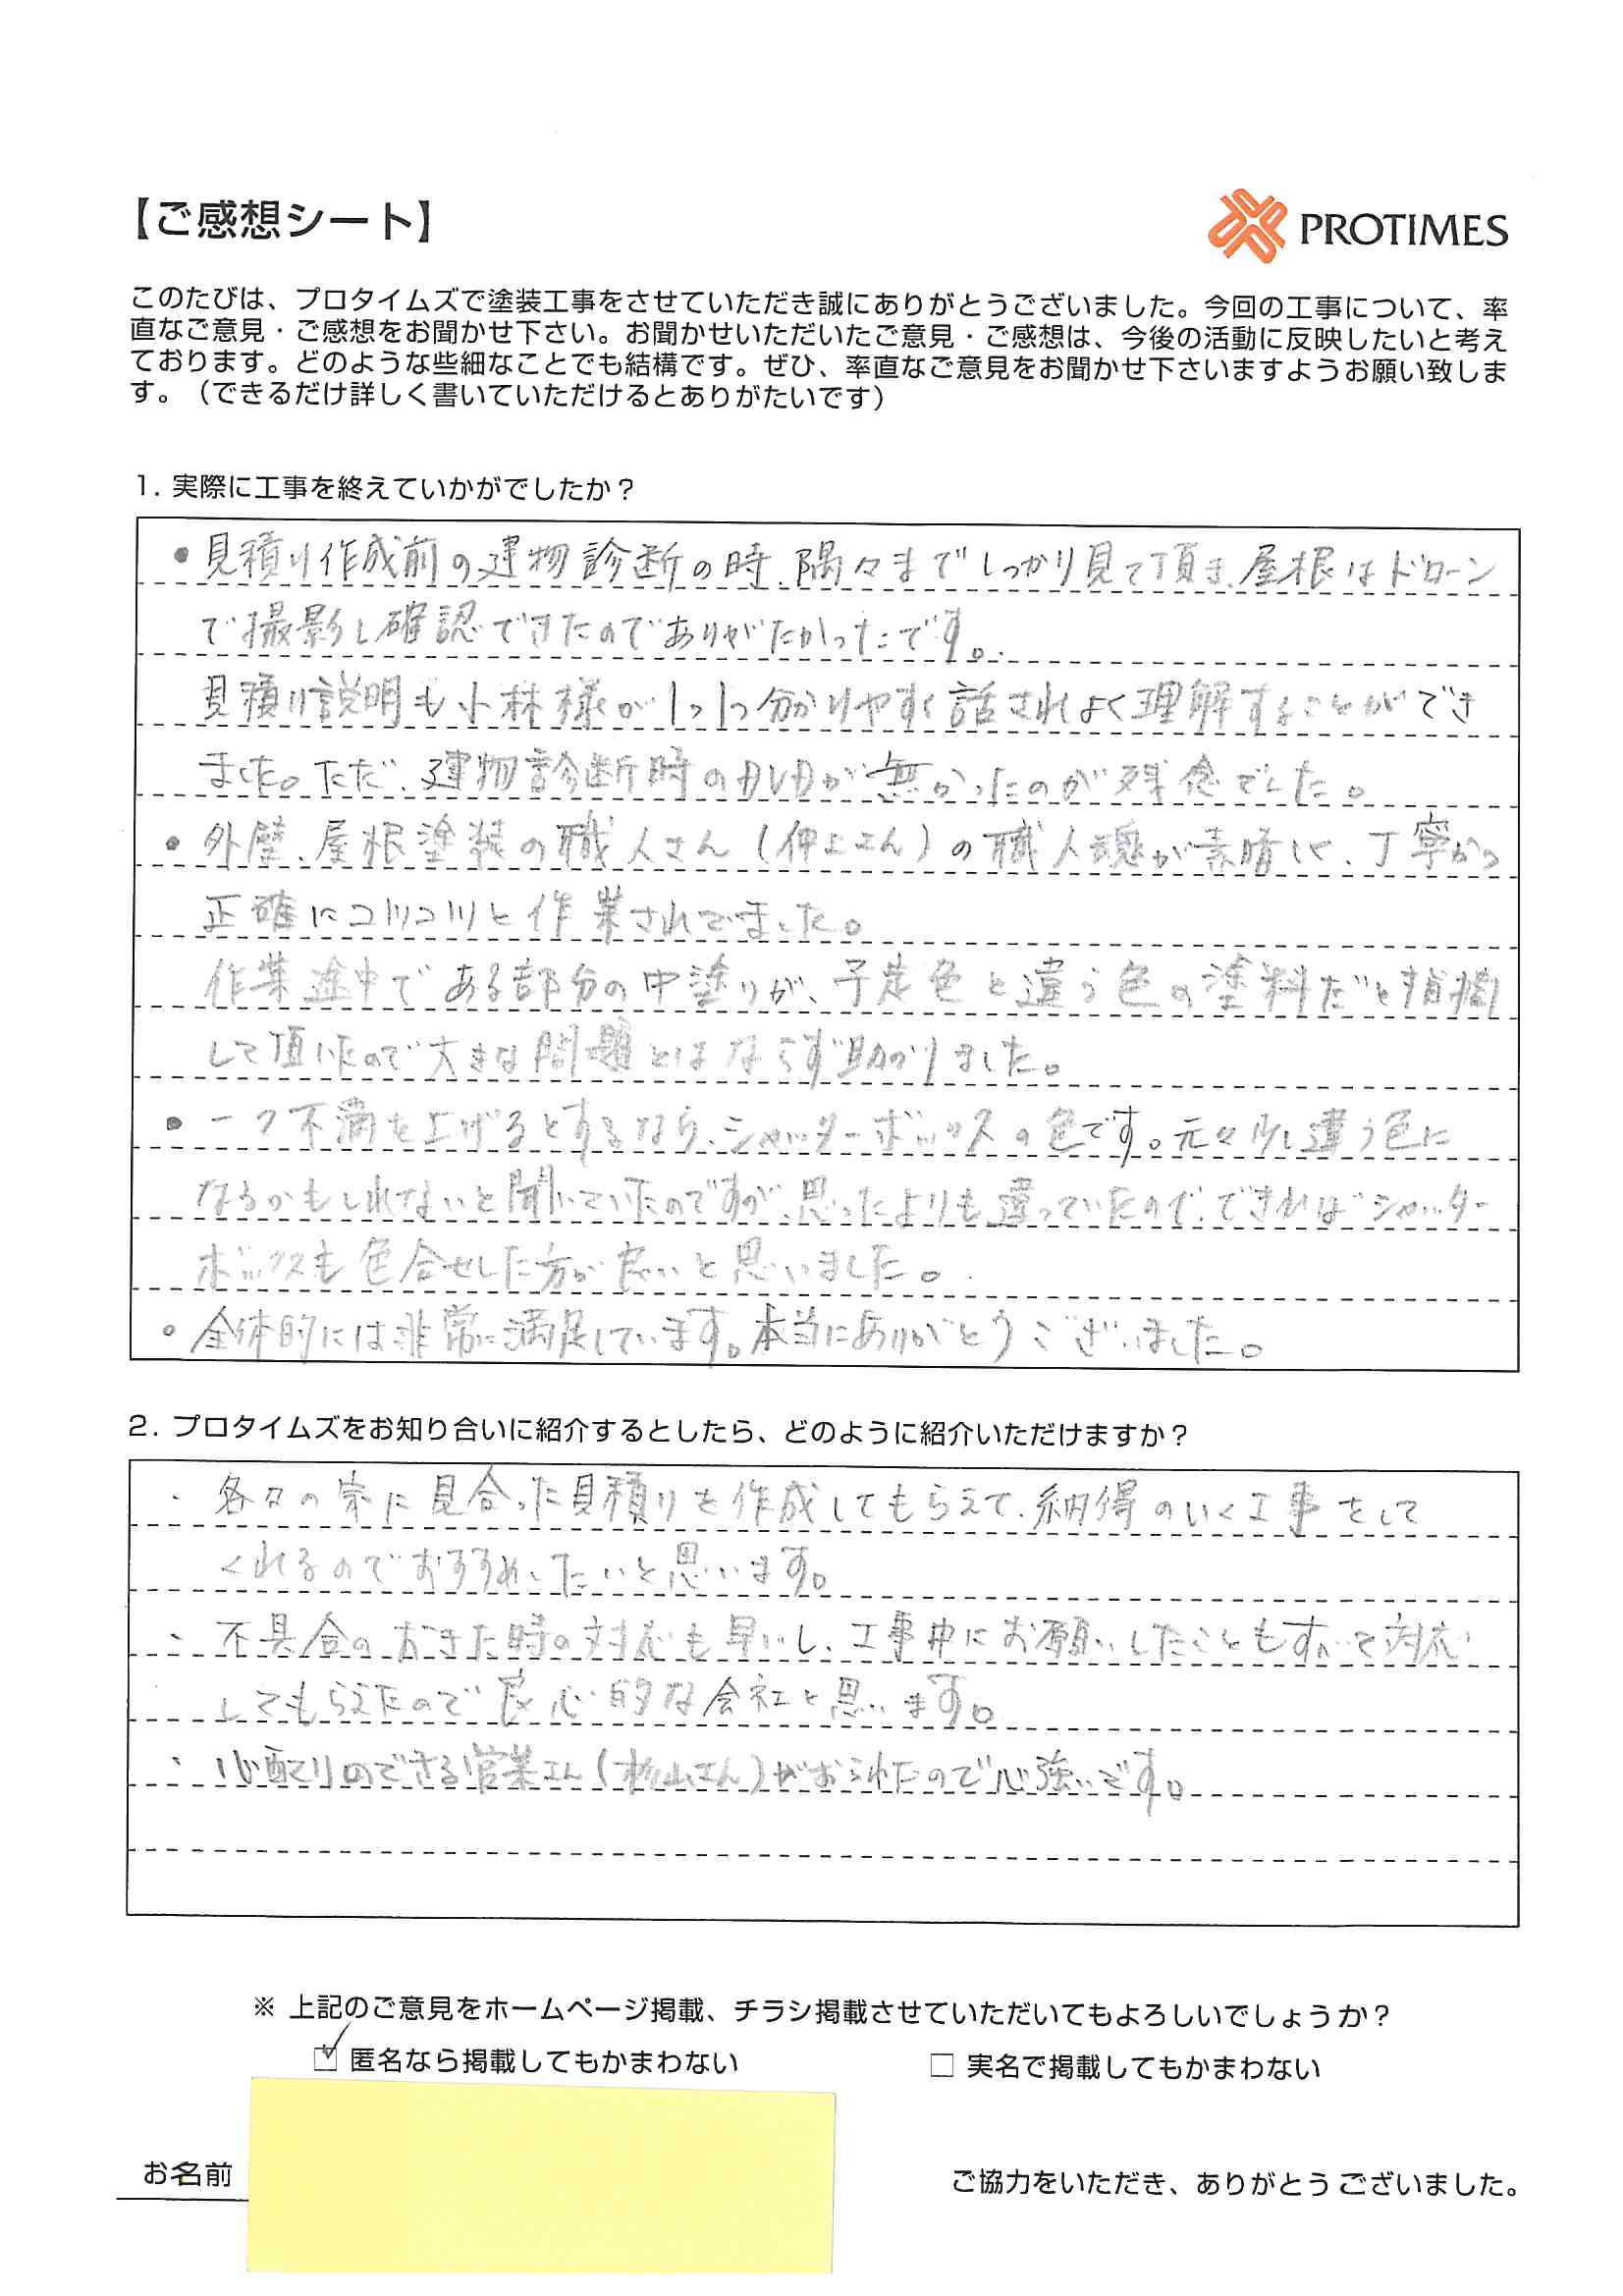 【ご感想シート】
PROTIMES
このたびは、プロタイムズで塗装工事をさせていただき誠にありがとうございました。今回の工事について、率
直なご意見・ご感想をお聞かせ下さい。お聞かせいただいたご意見・ご感想は、今後の活動に反映したいと考え
ております。どのような些細なことでも結構です。ぜひ、率直なご意見をお聞かせ下さいますようお願い致しま
す。（できるだけ詳しく書いていただけるとありがたいです）
1. 実際に工事を終えていかがでしたか？
・見積り作成前の建物診断の時、隅々までしっかり見て頂き、屋根はドローン
で撮影し確認できたのでありがたかったです。
見積り説明も小林様が1つ1つ分かりやすく話されよく理解することができ
ました。ただ、建物診断時のDVDが無かったのが残念でした。
・外壁、屋根塗装の職人さん（仲上さん）の職人魂が素晴しく、丁寧かつ
正確にコツコツと作業されてました。
作業途中である部分の中塗りが、予定色と違う色の塗料だと指摘
して頂いたので大きな問題とはならず助かりました。
・一つ不満を上げるとするなら、シャッターボックスの色です。元々少し違う色に
なるかもしれないと聞いていたのですが、思ったよりも違っていたので、できればシャッター
ボックスも色合せした方が良いと思いました。
・全体的には非常に満足しています。本当にありがとうございました。
2. プロタイムズをお知り合いに紹介するとしたら、どのように紹介いただけますか？
・各々の家に見合った見積りを作成してもらえて、納得のいく工事をして
くれるのでおすすめしたいと思います。
・不具合のおきた時の対応も早いし、工事中にお願いしたこともすべて対応
してもらえたので良心的な会社と思います。
・心配りのできる営業さん（杉山さん）がおられたので心強いです。
※ 上記のご意見をホームページ掲載、チラシ掲載させていただいてもよろしいでしょうか？
☑ 匿名なら掲載してもかまわない
□ 実名で掲載してもかまわない
お名前
ご協力をいただき、ありがとうございました。